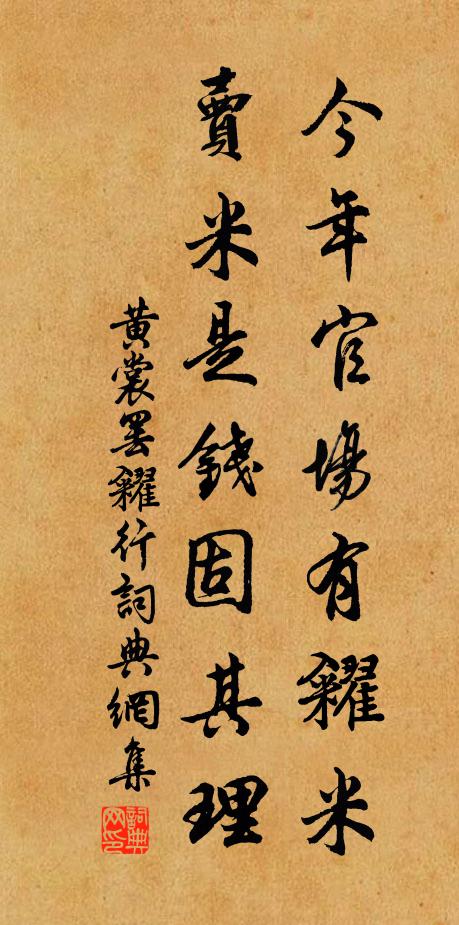 今年官場有糴米
賣米是錢固其理
黄裳罢糴行詞典網集
詞典网印